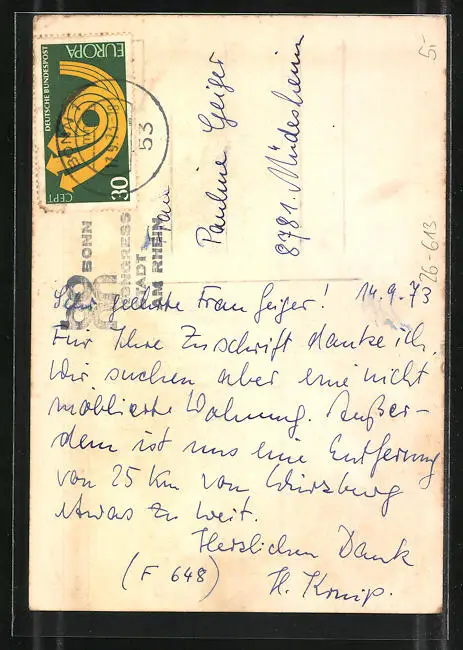 EUROPA
DEUTSCHE BUNDESPOST
30
CEPT
BONN 1
53
BONN
KONGRESS
STADT
AM RHEIN
Frau
Pauline Geiger
8781 Müdesheim
5,-
26-613
Sehr geehrte Frau Geiger! 14.9.73
Für Ihre Zuschrift danke ich.
Wir suchen aber eine nicht
möblierte Wohnung. Außer-
dem ist uns eine Entfernung
von 25 Km von Würzburg
etwas zu weit.
Herzlichen Dank
(F 648) H.